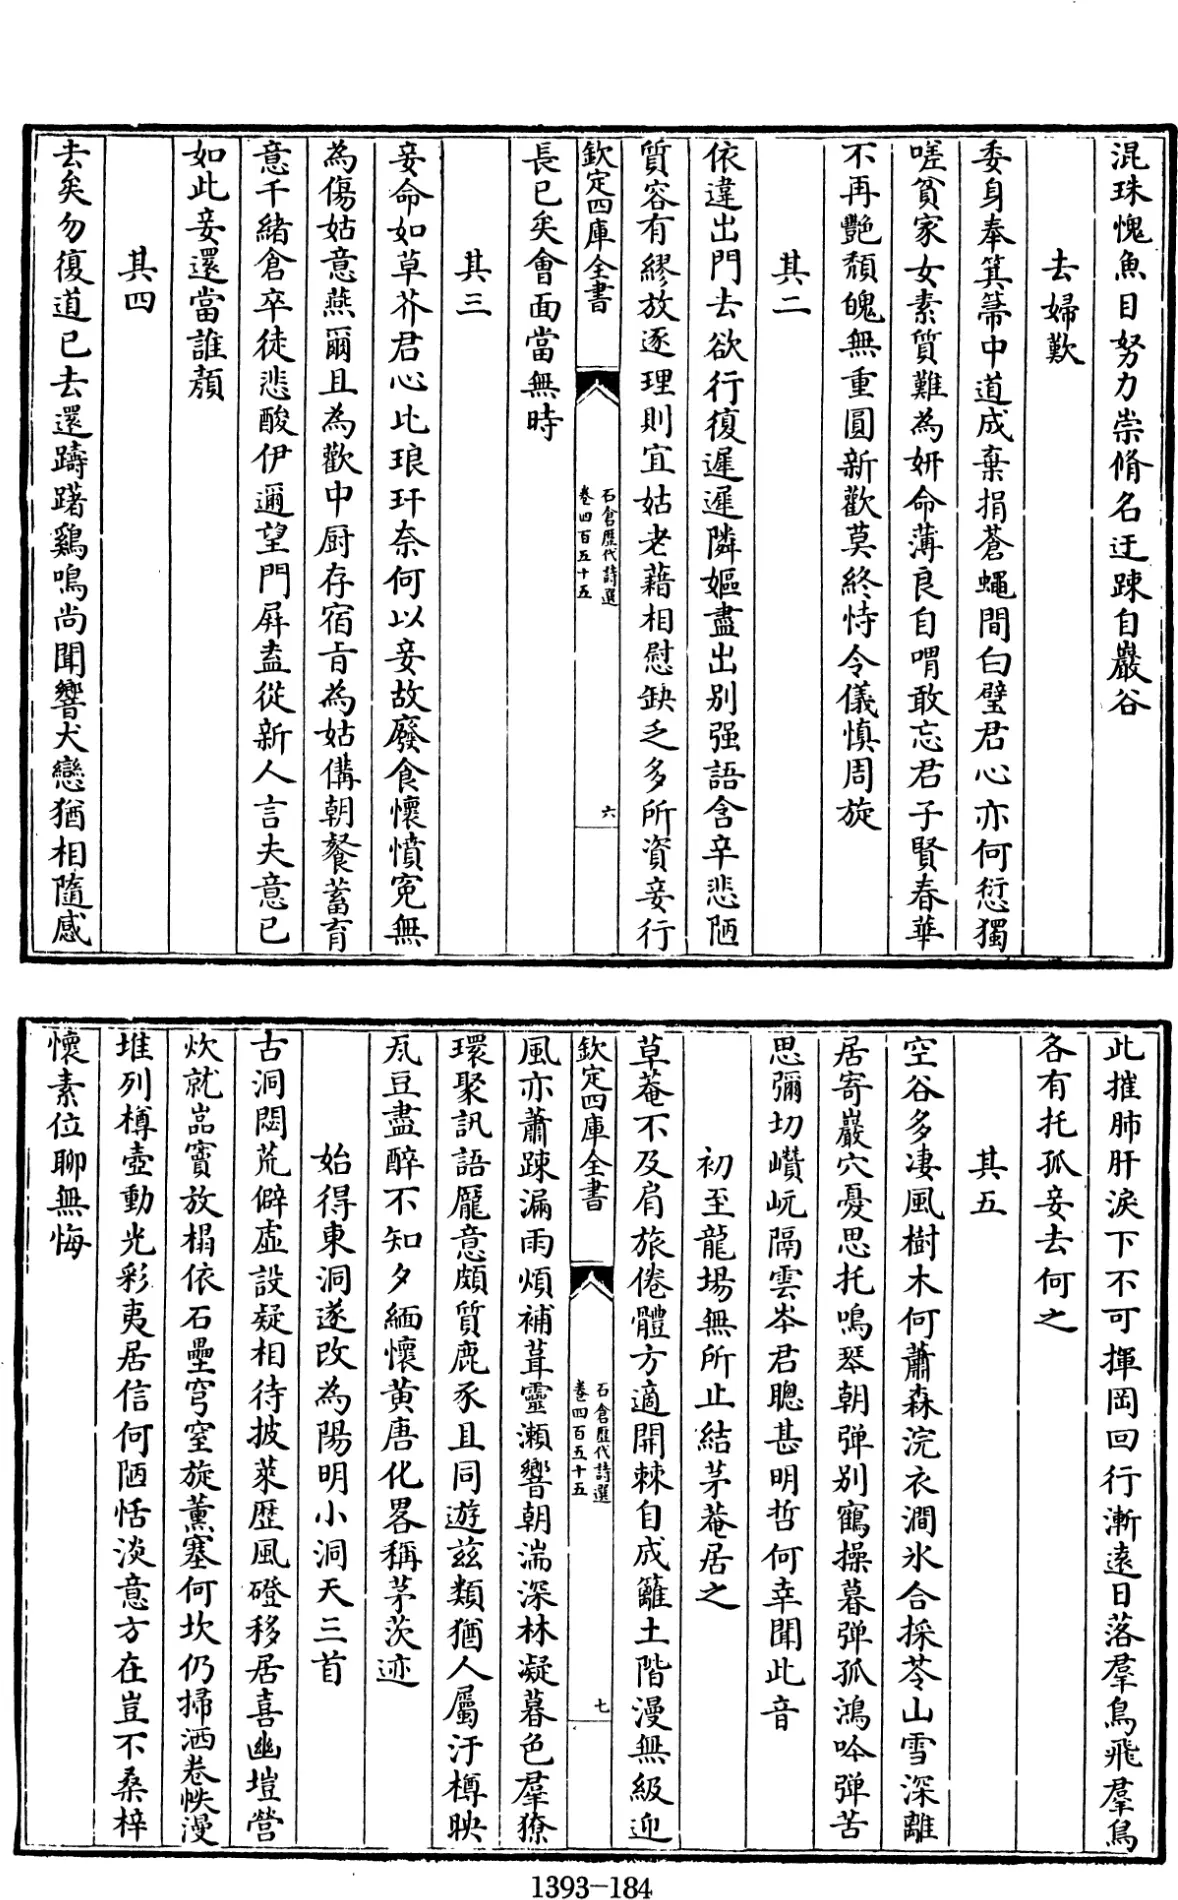 混珠愧魚目努力崇脩名迂踈自巖谷
去婦歎
委身奉箕箒中道成棄捐蒼蠅間白璧君心亦何愆獨
嗟貧家女素質難為妍命薄良自喟敢忘君子賢春華
不再艷頹魄無重圓新歡莫終恃令儀慎周旋
其二
依違出門去欲行復遲遲隣嫗盡出别强語含辛悲陋
質容有繆放逐理則宜姑老藉相慰缺乏多所資妾行
欽定四庫全書
石倉歷代詩選
卷四百五十五
六
長已矣會面當無時
其三
妾命如草芥君心比琅玕奈何以妾故廢食懷憤寃無
為傷姑意燕爾且為歡中厨存宿旨為姑備朝餐蓄育
意千緒倉卒徒悲酸伊邇望門屏盍從新人言夫意已
如此妾還當誰顔
其四
去矣勿復道已去還躊躇鷄鳴尚聞響犬戀猶相隨感
此摧肺肝淚下不可揮岡回行漸遠日落羣鳥飛羣鳥
各有托孤妾去何之
其五
空谷多凄風樹木何蕭森浣衣澗氷合採苓山雪深離
居寄巖穴憂思托鳴琴朝弹别鶴操暮弹孤鴻吟弹苦
思彌切巑岏隔雲岑君聰甚明哲何幸聞此音
初至龍場無所止結茅菴居之
草菴不及肩旅倦體方適開棘自成籬土階漫無級迎
欽定四庫全書
石倉歷代詩選
卷四百五十五
七
風亦蕭踈漏雨煩補葺靈瀨響朝湍深林凝暮色羣獠
環聚訊語龎意頗質鹿豕且同遊兹類猶人屬汙樽映
瓦豆盡醉不知夕緬懷黄唐化畧稱茅茨迹
始得東洞遂改為陽明小洞天三首
古洞閟荒僻虚設疑相待披萊歷風磴移居喜幽塏營
炊就嵓竇放榻依石壘穹窒旋薰塞何坎仍掃洒卷帙漫
堆列樽壺動光彩夷居信何陋恬淡意方在豈不桑梓
懷素位聊無悔
1393-184